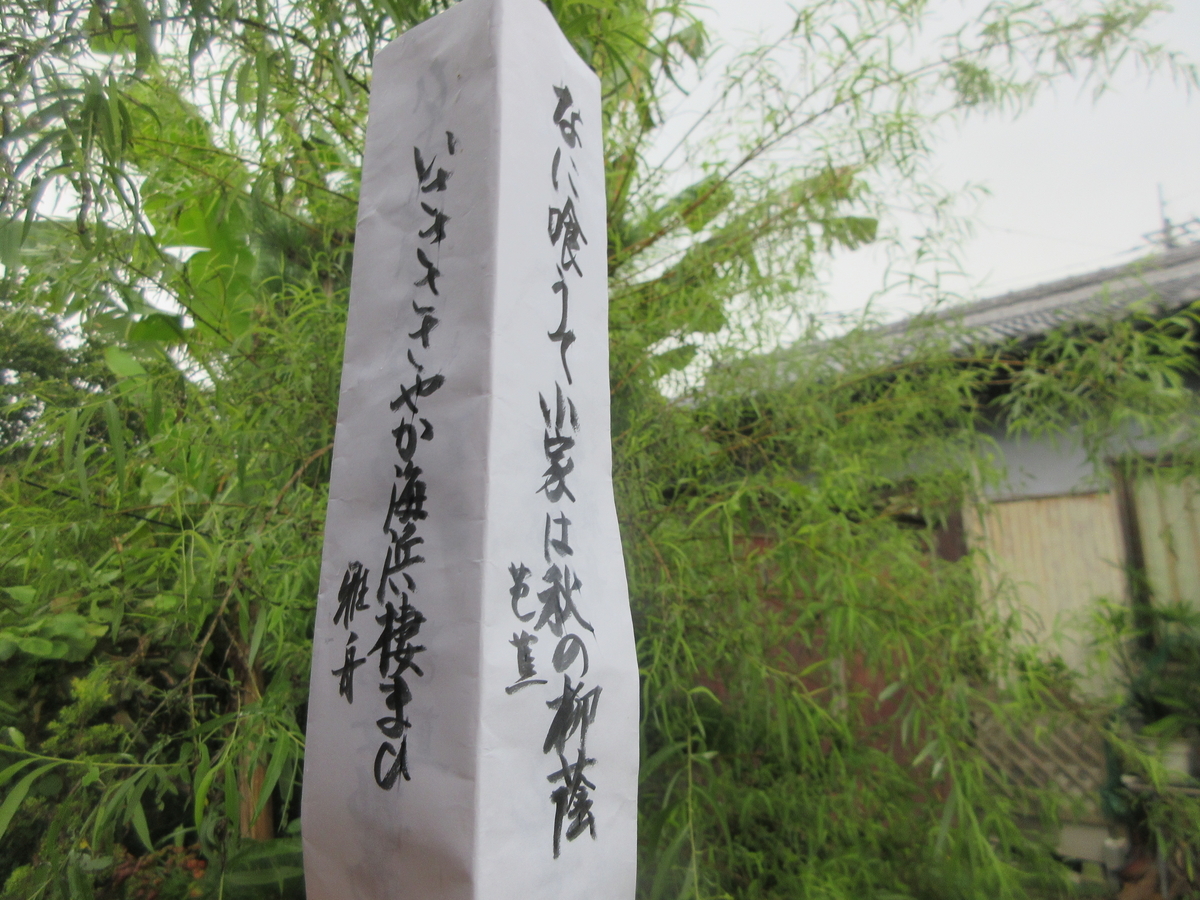 なに喰うて小家は秋の柳蔭
芭蕉
ささやか海浜棲まひ
雅舟